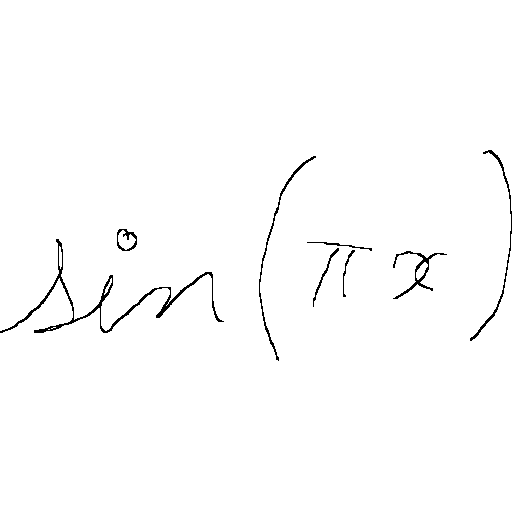 sin(πx)